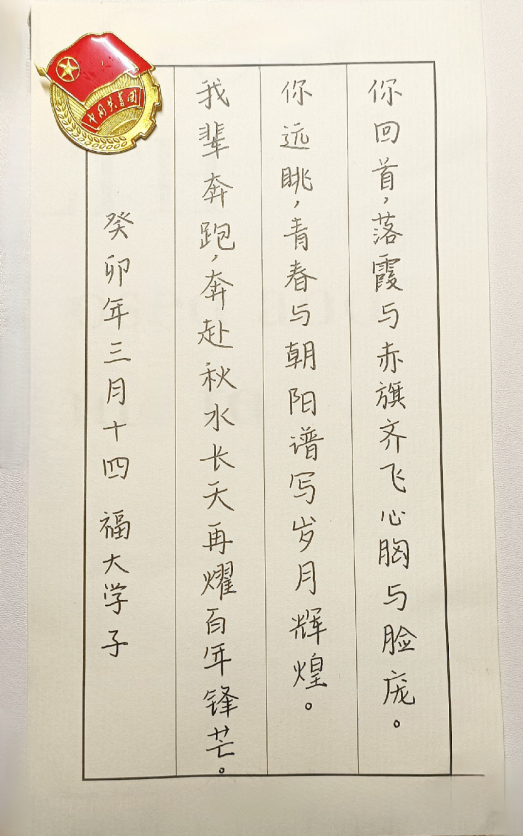 你回首，落霞与赤旗齐飞心胸与脸庞。
你远眺，青春与朝阳谱写岁月辉煌。
我辈奔跑，奔赴秋水长天再耀百年锋芒。
癸卯年三月十四 福大学子
中国共青团